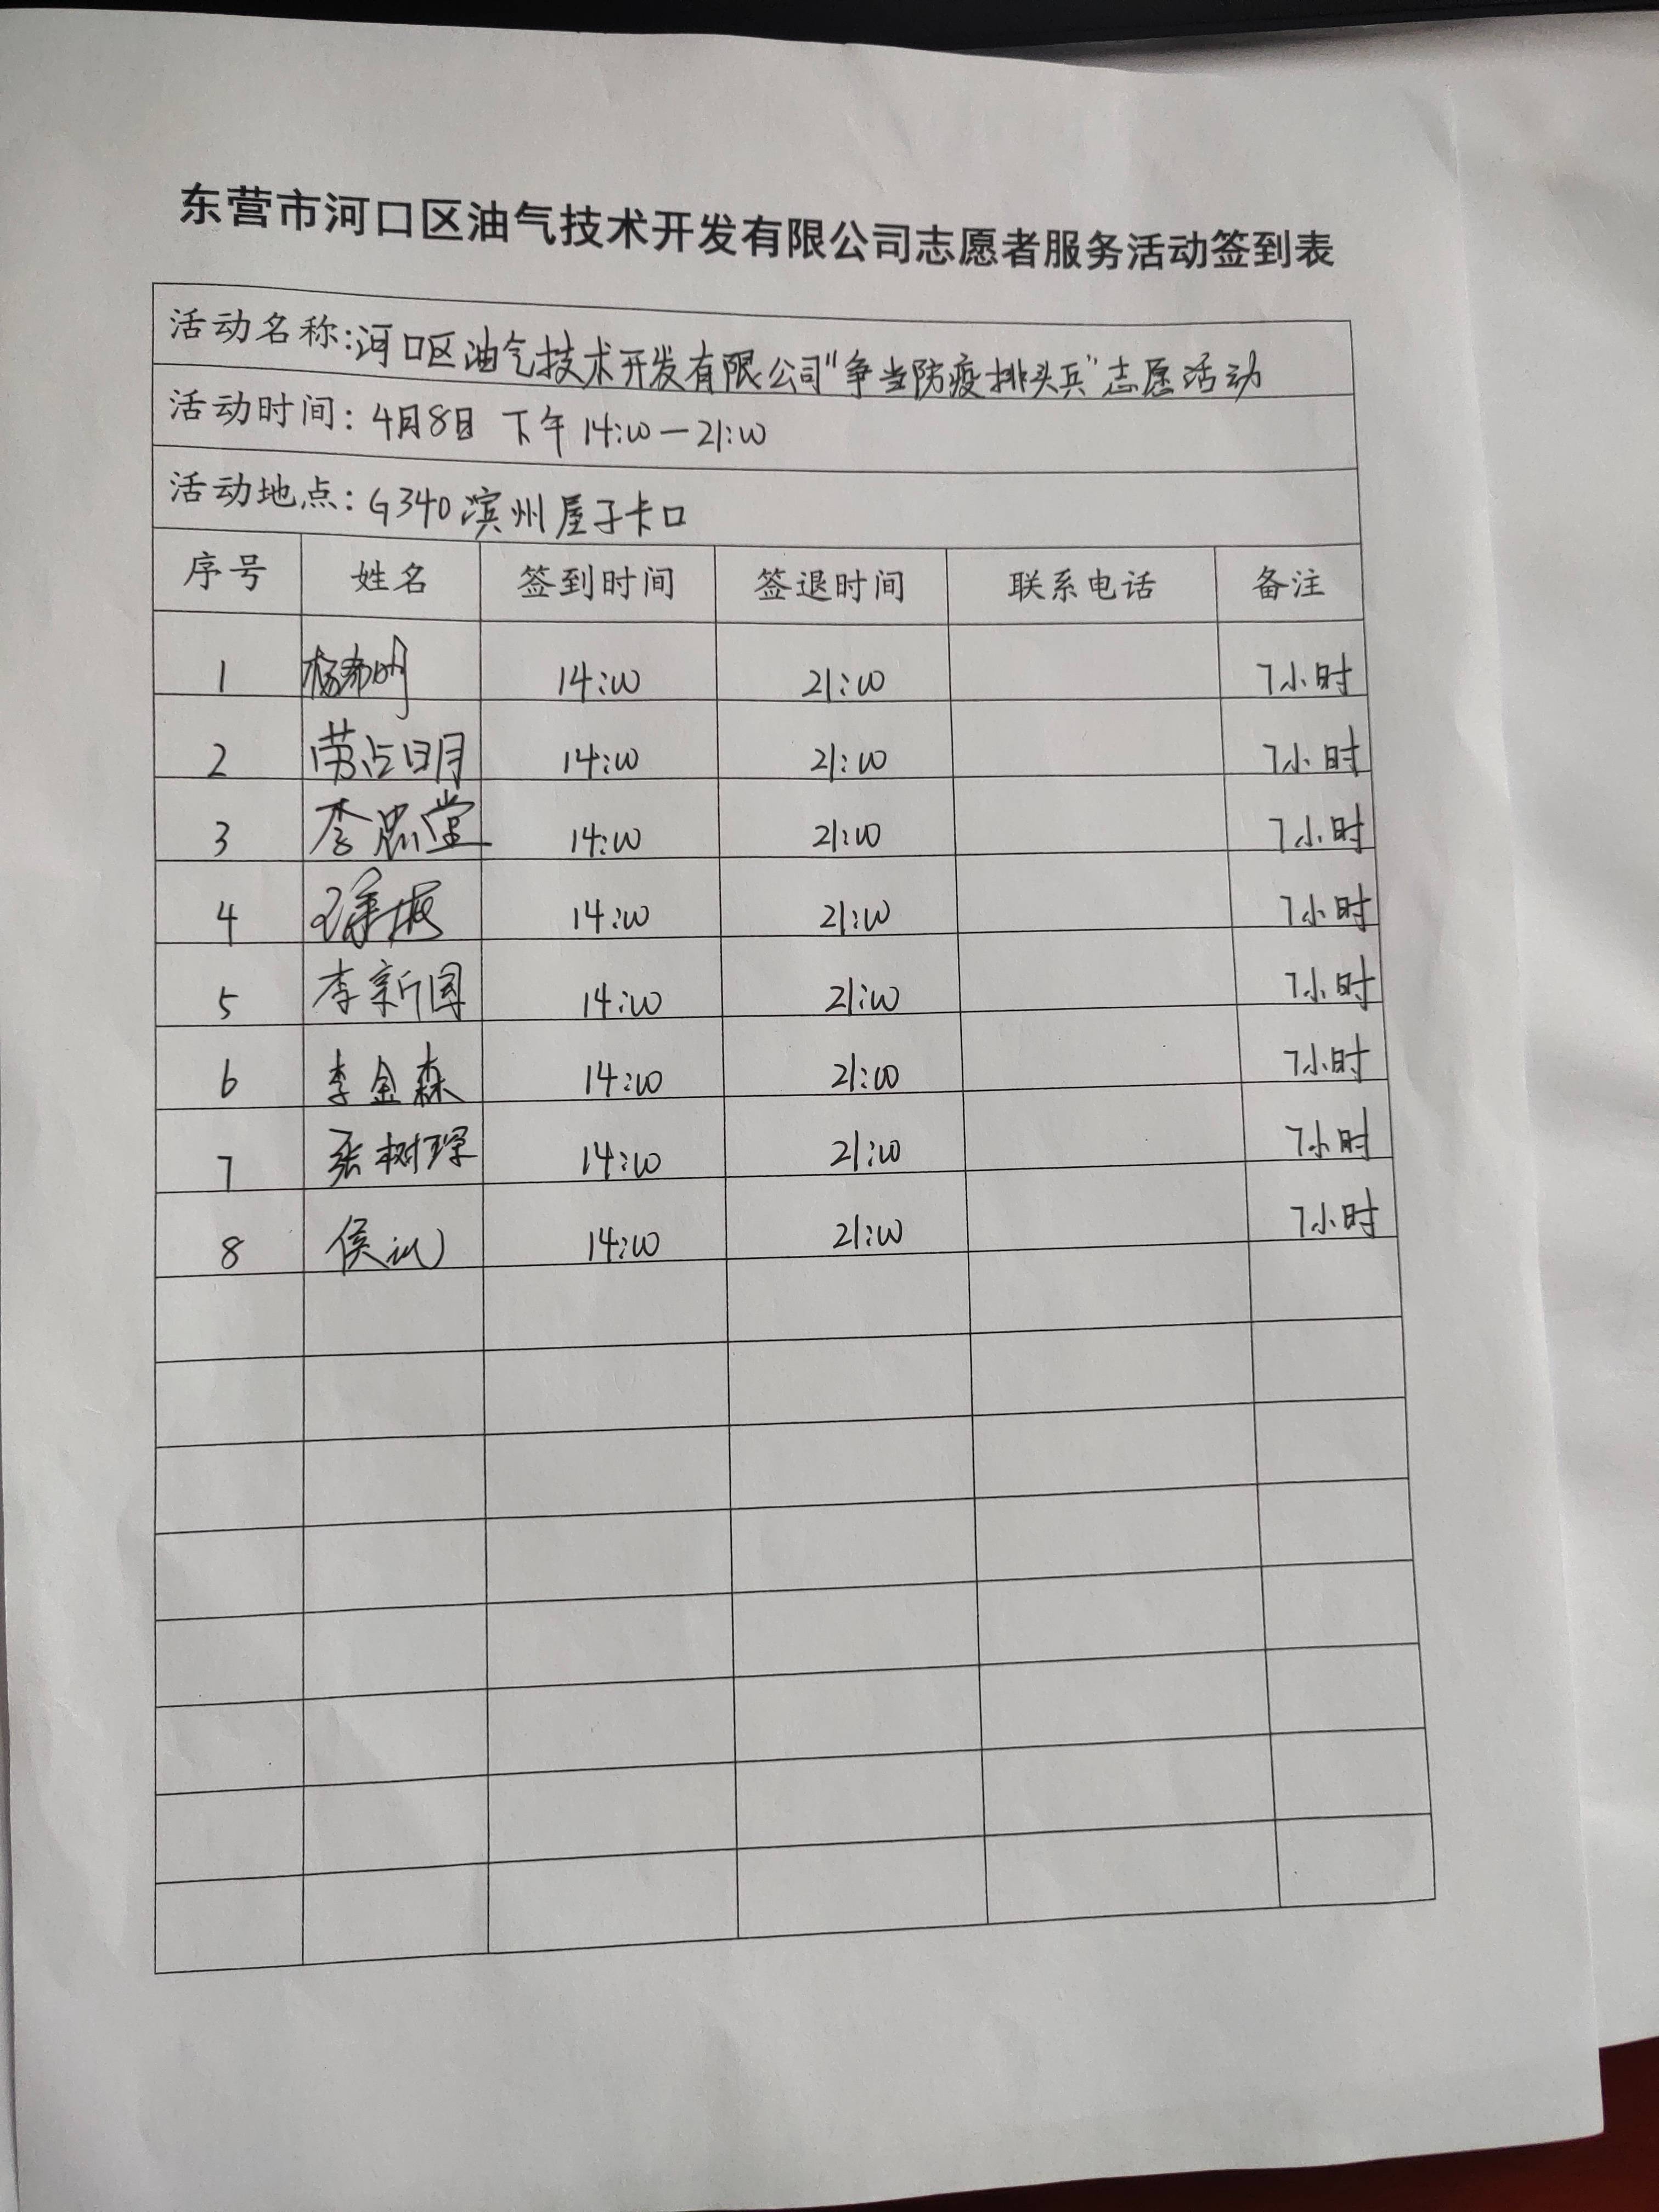 东营市河口区油气技术开发有限公司志愿者服务活动签到表
活动名称:河口区油气技术开发有限公司"争当防疫排头兵"志愿活动
活动时间: 4月8日 下午 14:00—21:00
活动地点: G340滨州屋子卡口
序号 姓名 签到时间 签退时间 联系电话 备注
1 14:00 21:00 7小时
2 劳占明 14:00 21:00 7小时
3 李忠堂 14:00 21:00 7小时
4 14:00 21:00 7小时
5 李新国 14:00 21:00 7小时
6 李金森 14:00 21:00 7小时
7 张树琛 14:00 21:00 7小时
8 侯 14:00 21:00 7小时